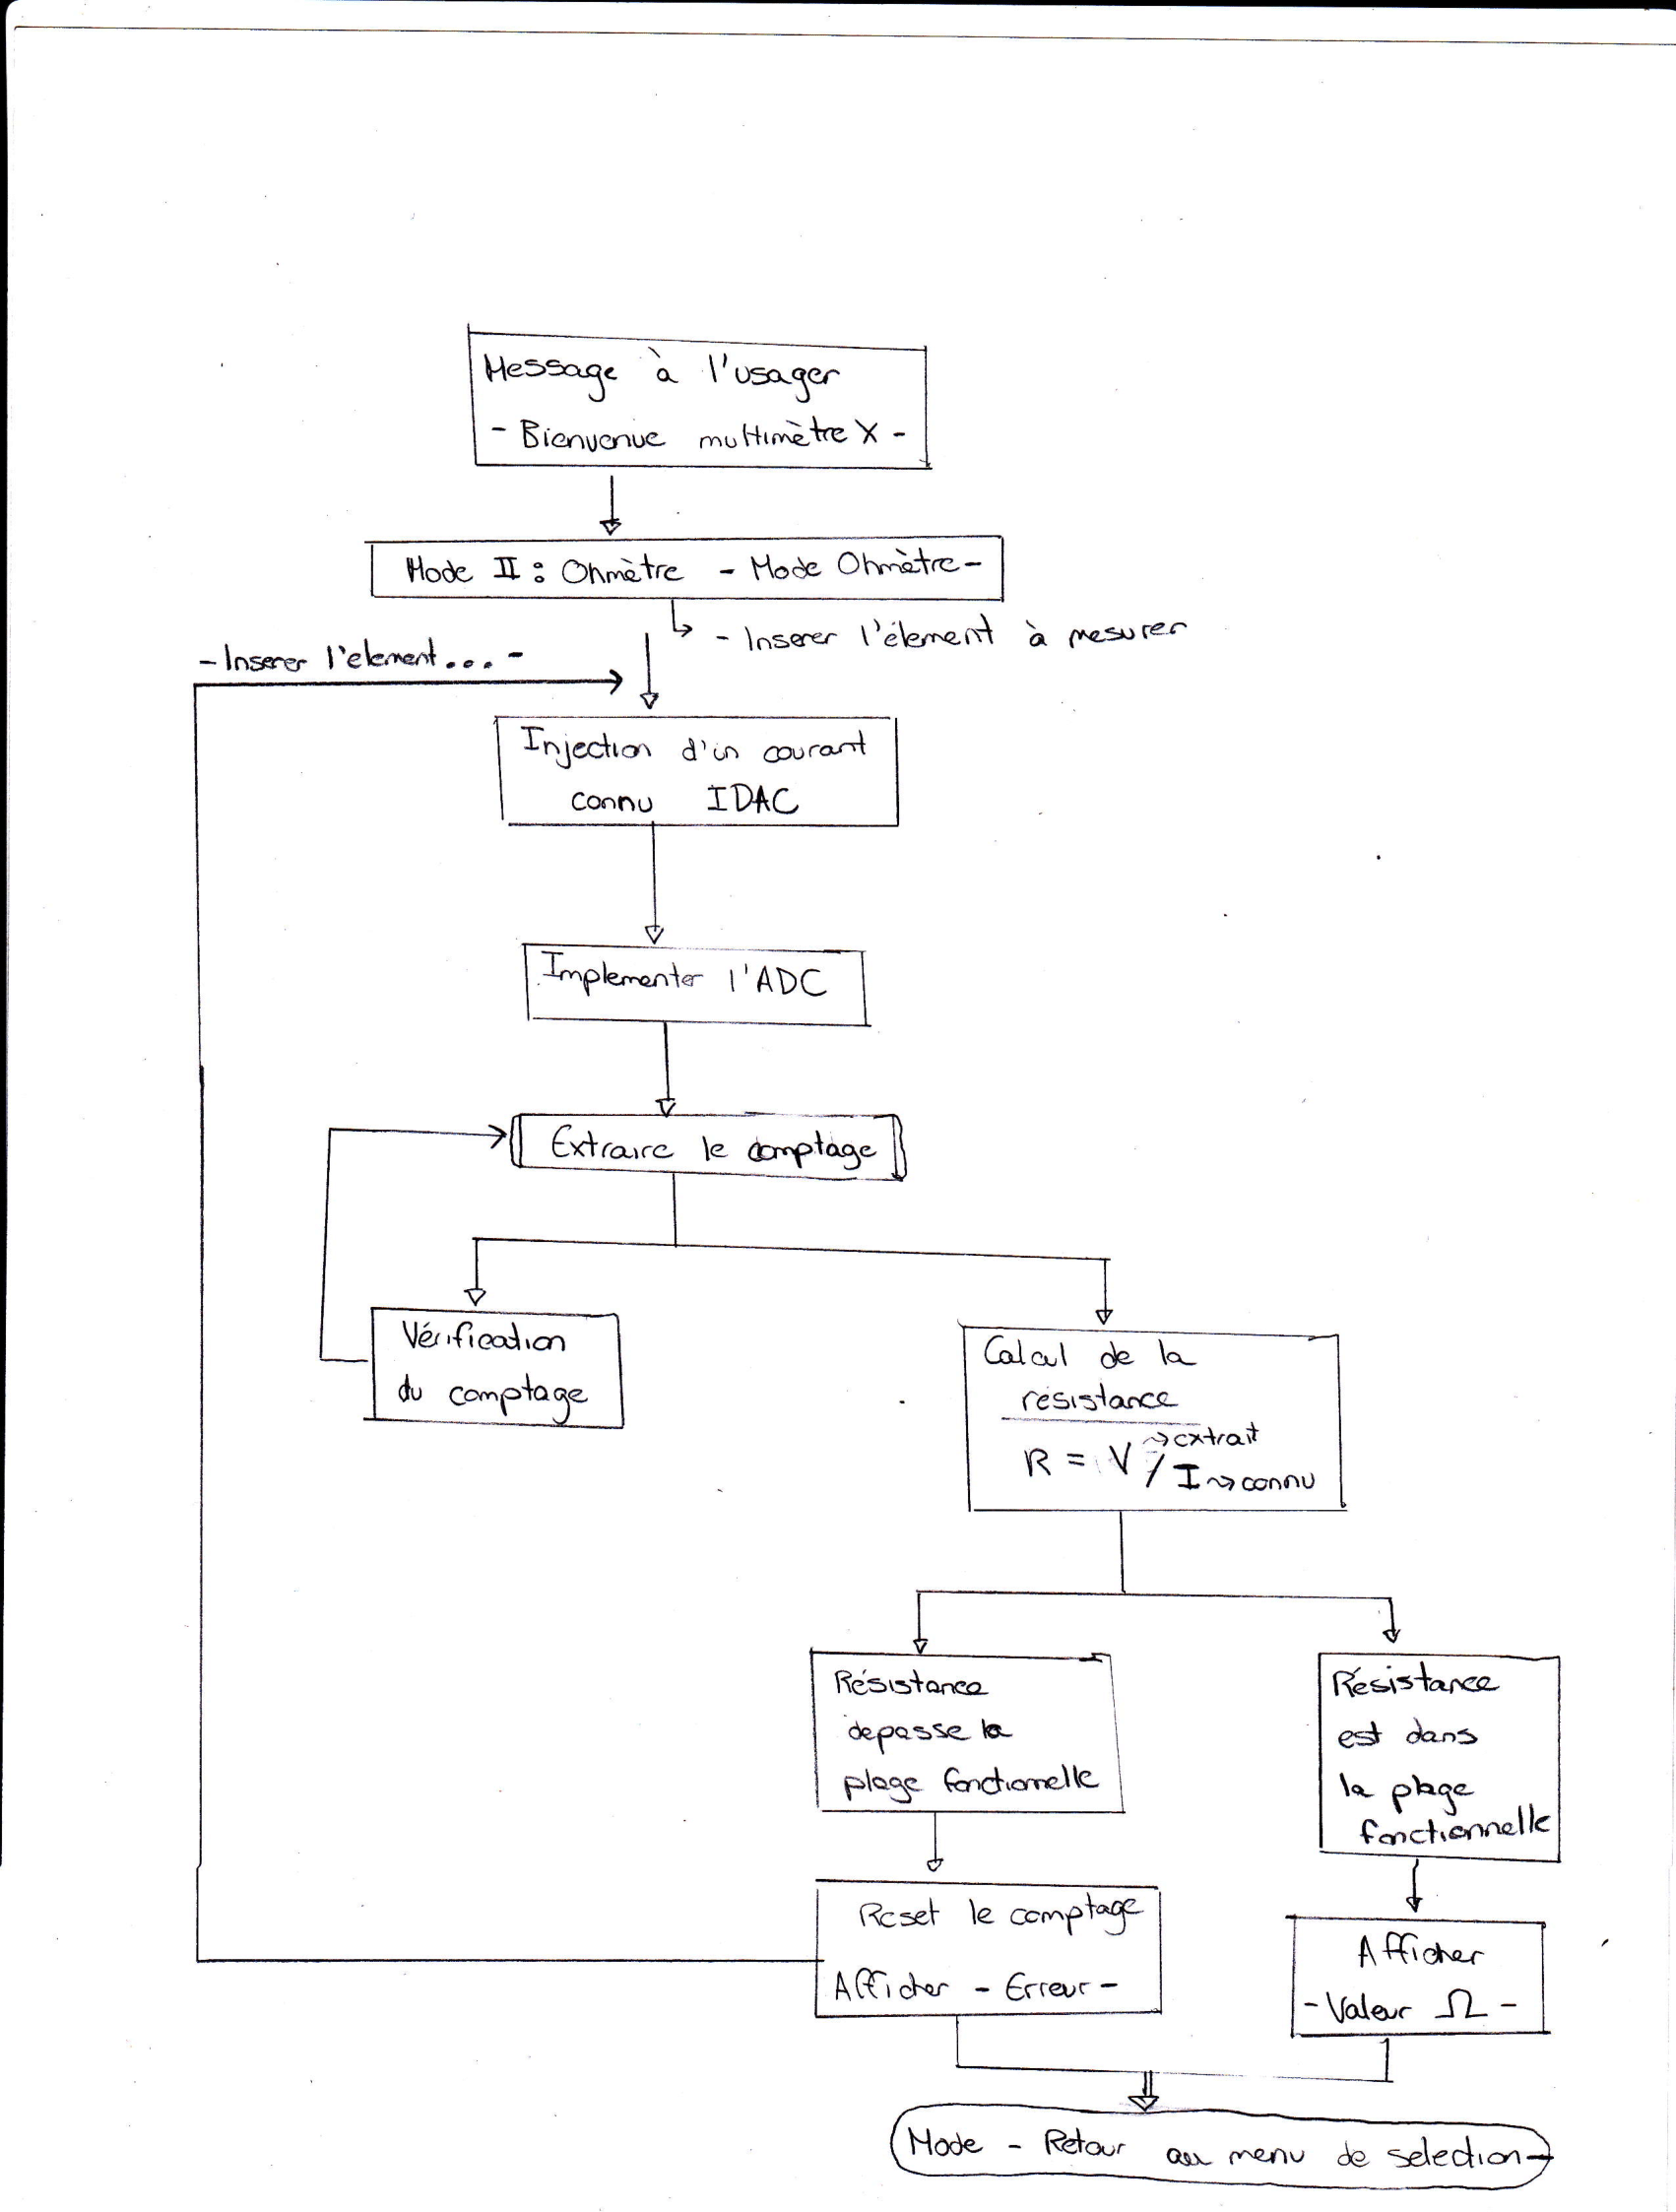 Message à l'usager
- Bienvenue multimètre X -
Mode II : Ohmètre - Mode Ohmètre -
- Inserer l'élement à mesurer
- Inserer l'element... -
Injection d'un courant
connu IDAC
Implementer l'ADC
Extraire le comptage
Vérification
du comptage
Calcul de la
résistance
R = V ⇝ extrait
/ I ⇝ connu
Résistance
depasse la
plage fonctionelle
Résistance
est dans
la plage
fonctionnelle
Reset le comptage
Afficher - Erreur -
Afficher
- Valeur Ω -
Mode - Retour au menu de selection -